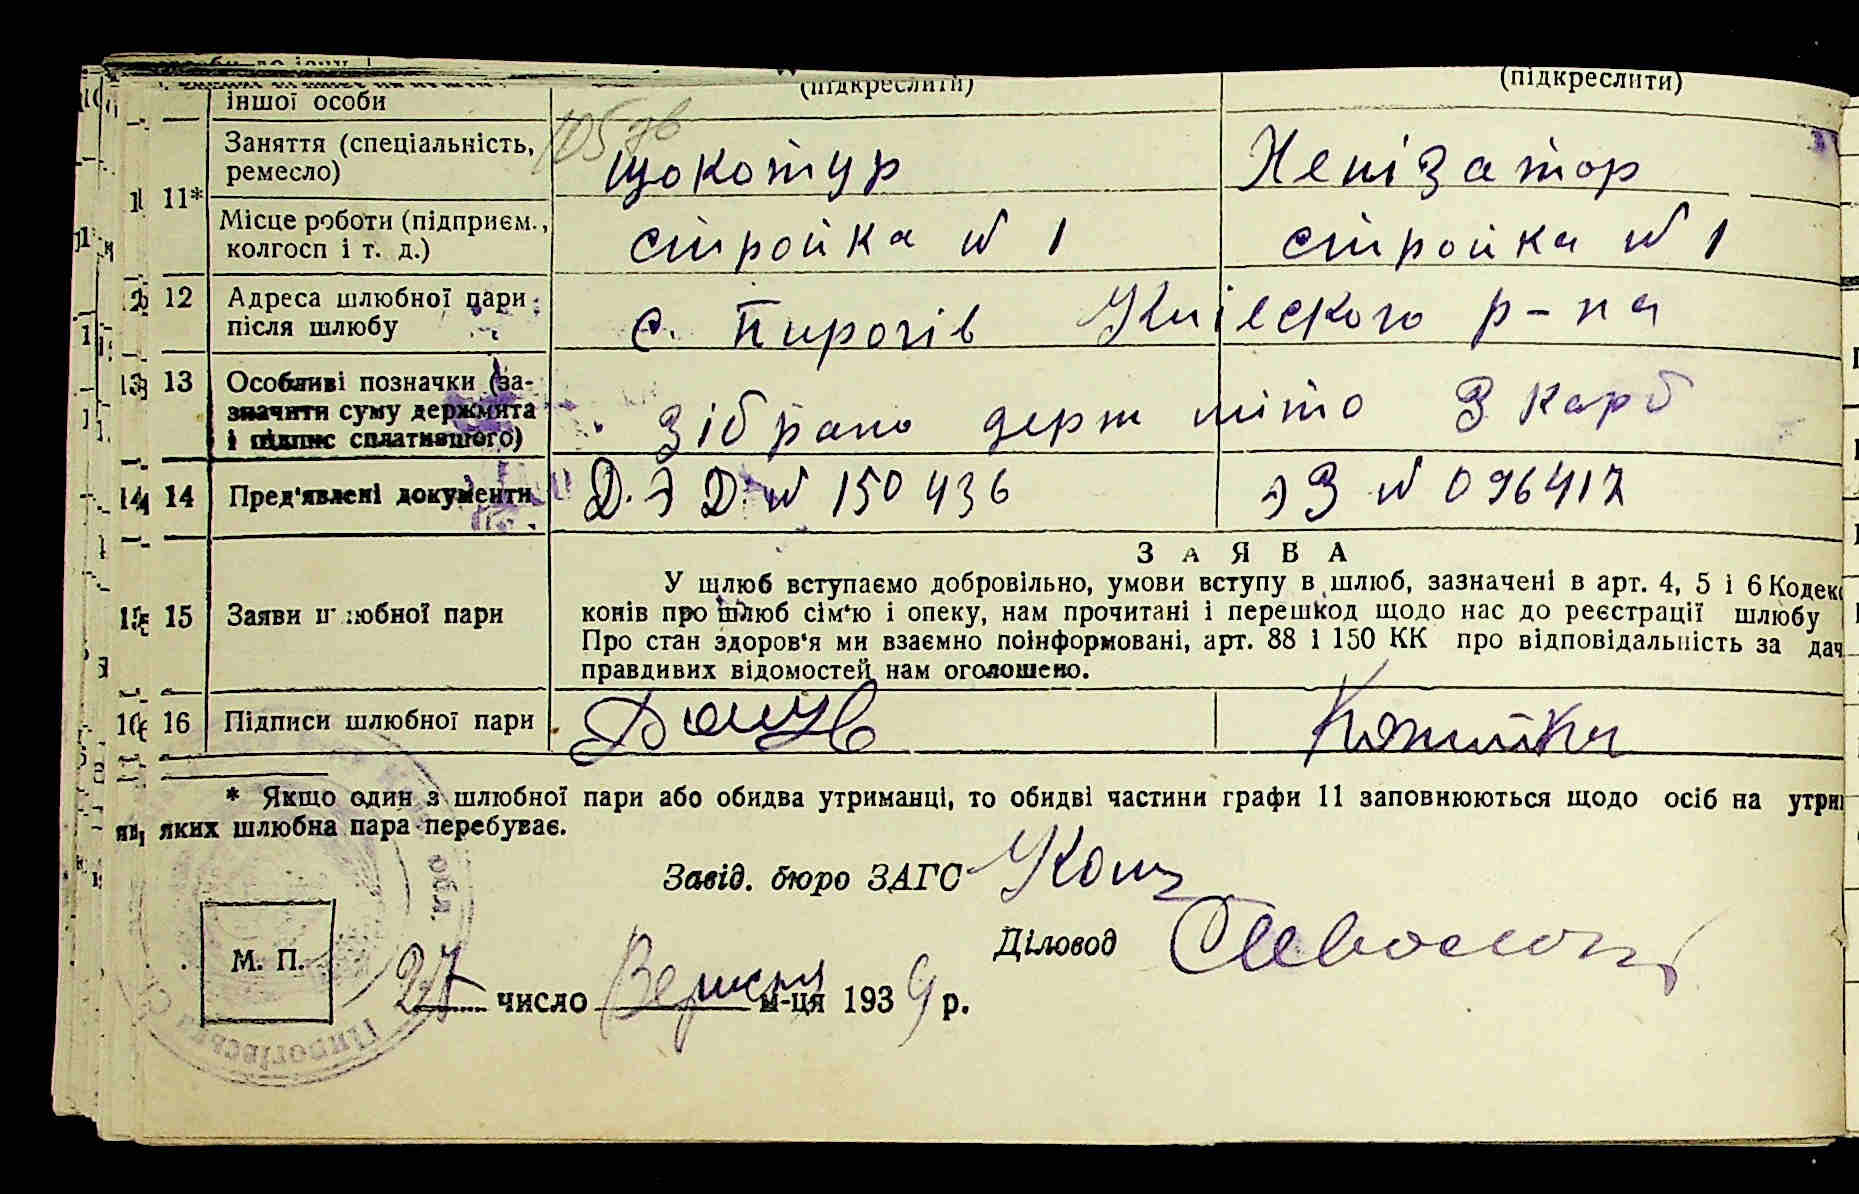 (підкреслити) (підкреслити)
іншої особи
Заняття (спеціальність, щокотур
ремесло)
11*
Місце роботи (підприєм., стройка № 1 стройка № 1
колгосп і т. д.)
12 Адреса шлюбної пари с. Пирогів Київского р-на
після шлюбу
13 Особливі позначки (за-
значити суму держмята Зібрано держ мито 3 карб
і підпис сплатившого)
14 Пред'явлені документи № 150436 № 096417
З А Я В А
У шлюб вступаємо добровільно, умови вступу в шлюб, зазначені в арт. 4, 5 і 6 Кодек
15 Заяви шлюбної пари конів про шлюб сім'ю і опеку, нам прочитані і перешкод щодо нас до реєстрації шлюбу
Про стан здоров'я ми взаємно поінформовані, арт. 88 і 150 КК про відповідальність за дач
правдивих відомостей нам оголошено.
16 Підписи шлюбної пари
* Якщо один з шлюбної пари або обидва утриманці, то обидві частини графи 11 заповнюються щодо осіб на утри
яких шлюбна пара перебуває.
Завід. бюро ЗАГС
Діловод
М. П.
27 число Вересня м-ця 1939 р.